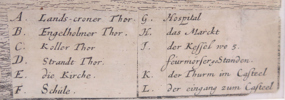 A. Lands-croner Thor.
B. Engelholmer Thor.
C. Keller Thor
D. Strandt Thor.
E. die Kirche.
F. Schule.
G. Hospital
H. das Marckt
I. der Kessel wo 3
feurmorser Standen.
K. der Thurm im Casteel
L. der eingang zum Casteel